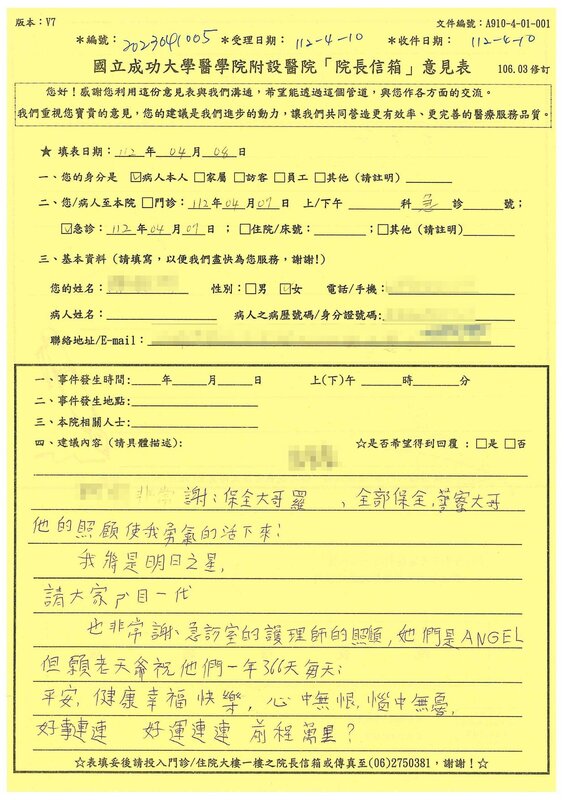 版本：V7 文件編號：A910-4-01-001
＊編號：2023041005 ＊受理日期：112-4-10 ＊收件日期：112-4-10
國立成功大學醫學院附設醫院「院長信箱」意見表 106.03修訂
您好！感謝您利用這份意見表與我們溝通，希望能透過這個管道，與您作各方面的交流。
我們重視您寶貴的意見，您的建議是我們進步的動力，讓我們共同營造更有效率、更完善的醫療服務品質。
★ 填表日期：112 年 04 月 08 日
一、您的身分是 ☑病人本人 □家屬 □訪客 □員工 □其他（請註明）
二、您/病人至本院 □門診：112 年 04 月 07 日 上/下午 科 急 診 號；
☑急診：112 年 04 月 07 日 ；□住院/床號： ；□其他（請註明）
三、基本資料（請填寫，以便我們盡快為您服務，謝謝！）
您的姓名： 性別：□男 ☑女 電話/手機：
病人姓名： 病人之病歷號碼/身分證號碼：
聯絡地址/E-mail：
一、事件發生時間： 年 月 日 上(下)午 時 分
二、事件發生地點：
三、本院相關人士：
四、建議內容（請具體描述）： ☆是否希望得到回覆：□是 □否
非常謝：保全大哥羅 、全部保全，警察大哥
他的照顧使我勇氣的活下來；
我將是明日之星，
請大家 目一代
也非常謝、急診室的護理師的照顧，她們是ANGEL
但願老天爺祝他們一年366天每天；
平安，健康幸福快樂，心中無恨，惱中無憂，
好事連連 好運連連 前程萬里？
☆表填妥後請投入門診/住院大樓一樓之院長信箱或傳真至(06)2750381，謝謝！☆